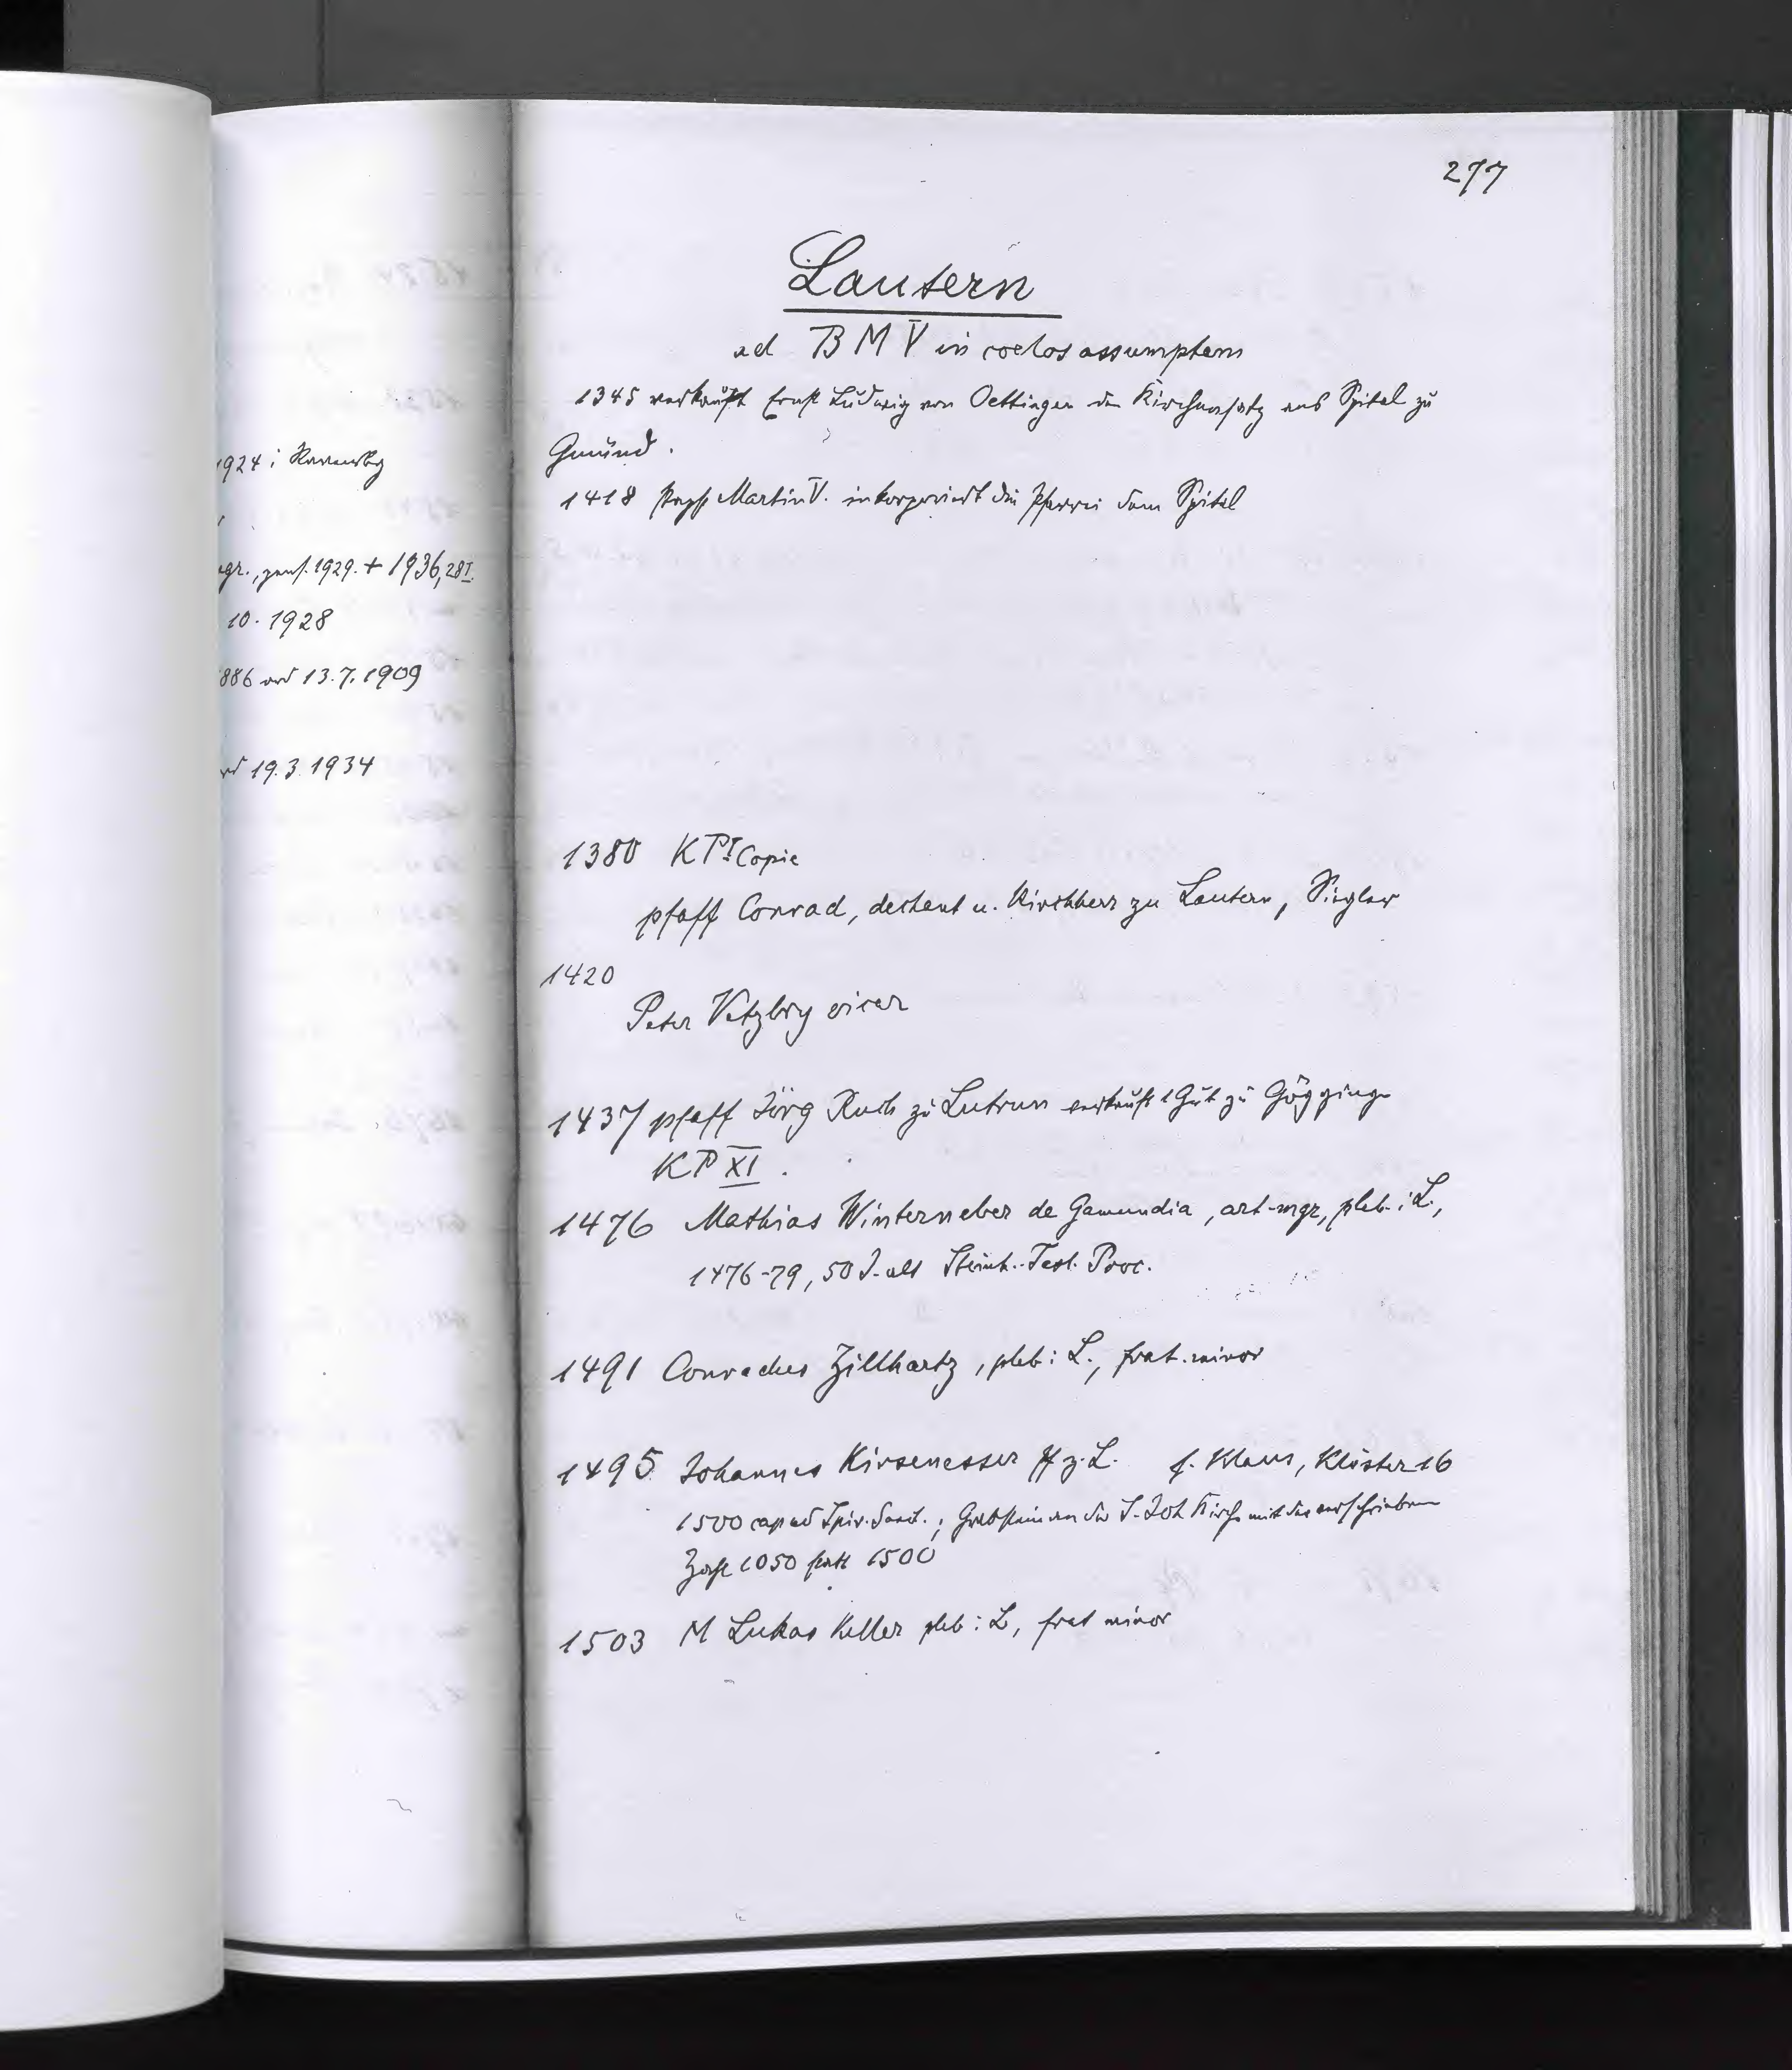 1924 i Ravensbg
gr., gest. 1929. + 1936, 28 I.
10. 1928
886 ord 13.7.1909
ord 19.3.1934
277
Lautern
ad B M V in coelos assumptam
1345 verkauft Graf Ludwig von Oettingen den Kirchensatz ans Spital zu
Gmünd.
1418 Papst Martin V. inkorporiert die Pfarrei dem Spital
1380 KP I Copie
pfaff Conrad, dechent u. Kirchherr zu Lautern, Siegler
1420
Peter Vetzbry vicar
1437 pfaff Jörg Ruch zu Lutrun verkauft 1 Gut zu Göggingen
KP XI.
1476 Mathias Winterneber de Gamundia, art. mgr, pleb. i L.,
1476-79, 50 J. alt Steinh. Test. Proc.
1491 Conradus Zillhartz, pleb i L., frat. minor
1495 Johannes Kirsenesser Pf z. L. f. Klaus, Klöster 16
1500 cap ad Spir. Sanct.; Grabstein an der S. Joh Kirche mit der verschriebenen
Zahl 1050 statt 1500
1503 M Lukas Keller pleb i L, frat minor